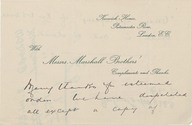 Thanet House,
Paternoster Row,
London E.C.
With
Messrs Marshall Brothers'
Compliments and Thanks
Many thanks for esteemed
order. We have despatched
all except a copy of